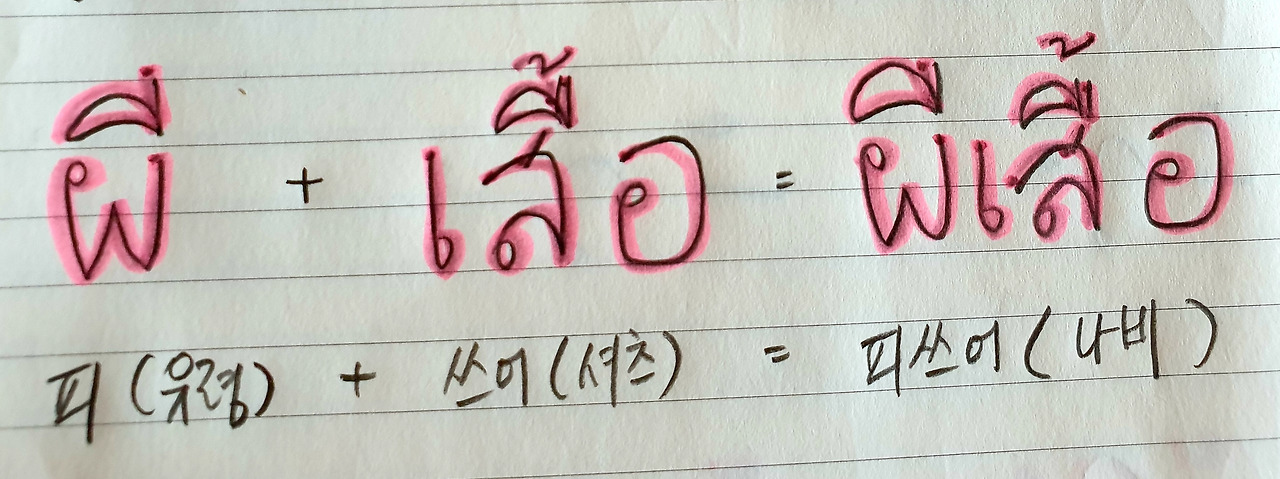 ผี + เสื้อ = ผีเสื้อ
피 (유령) + 쓰어 (셔츠) = 피쓰어 (나비)